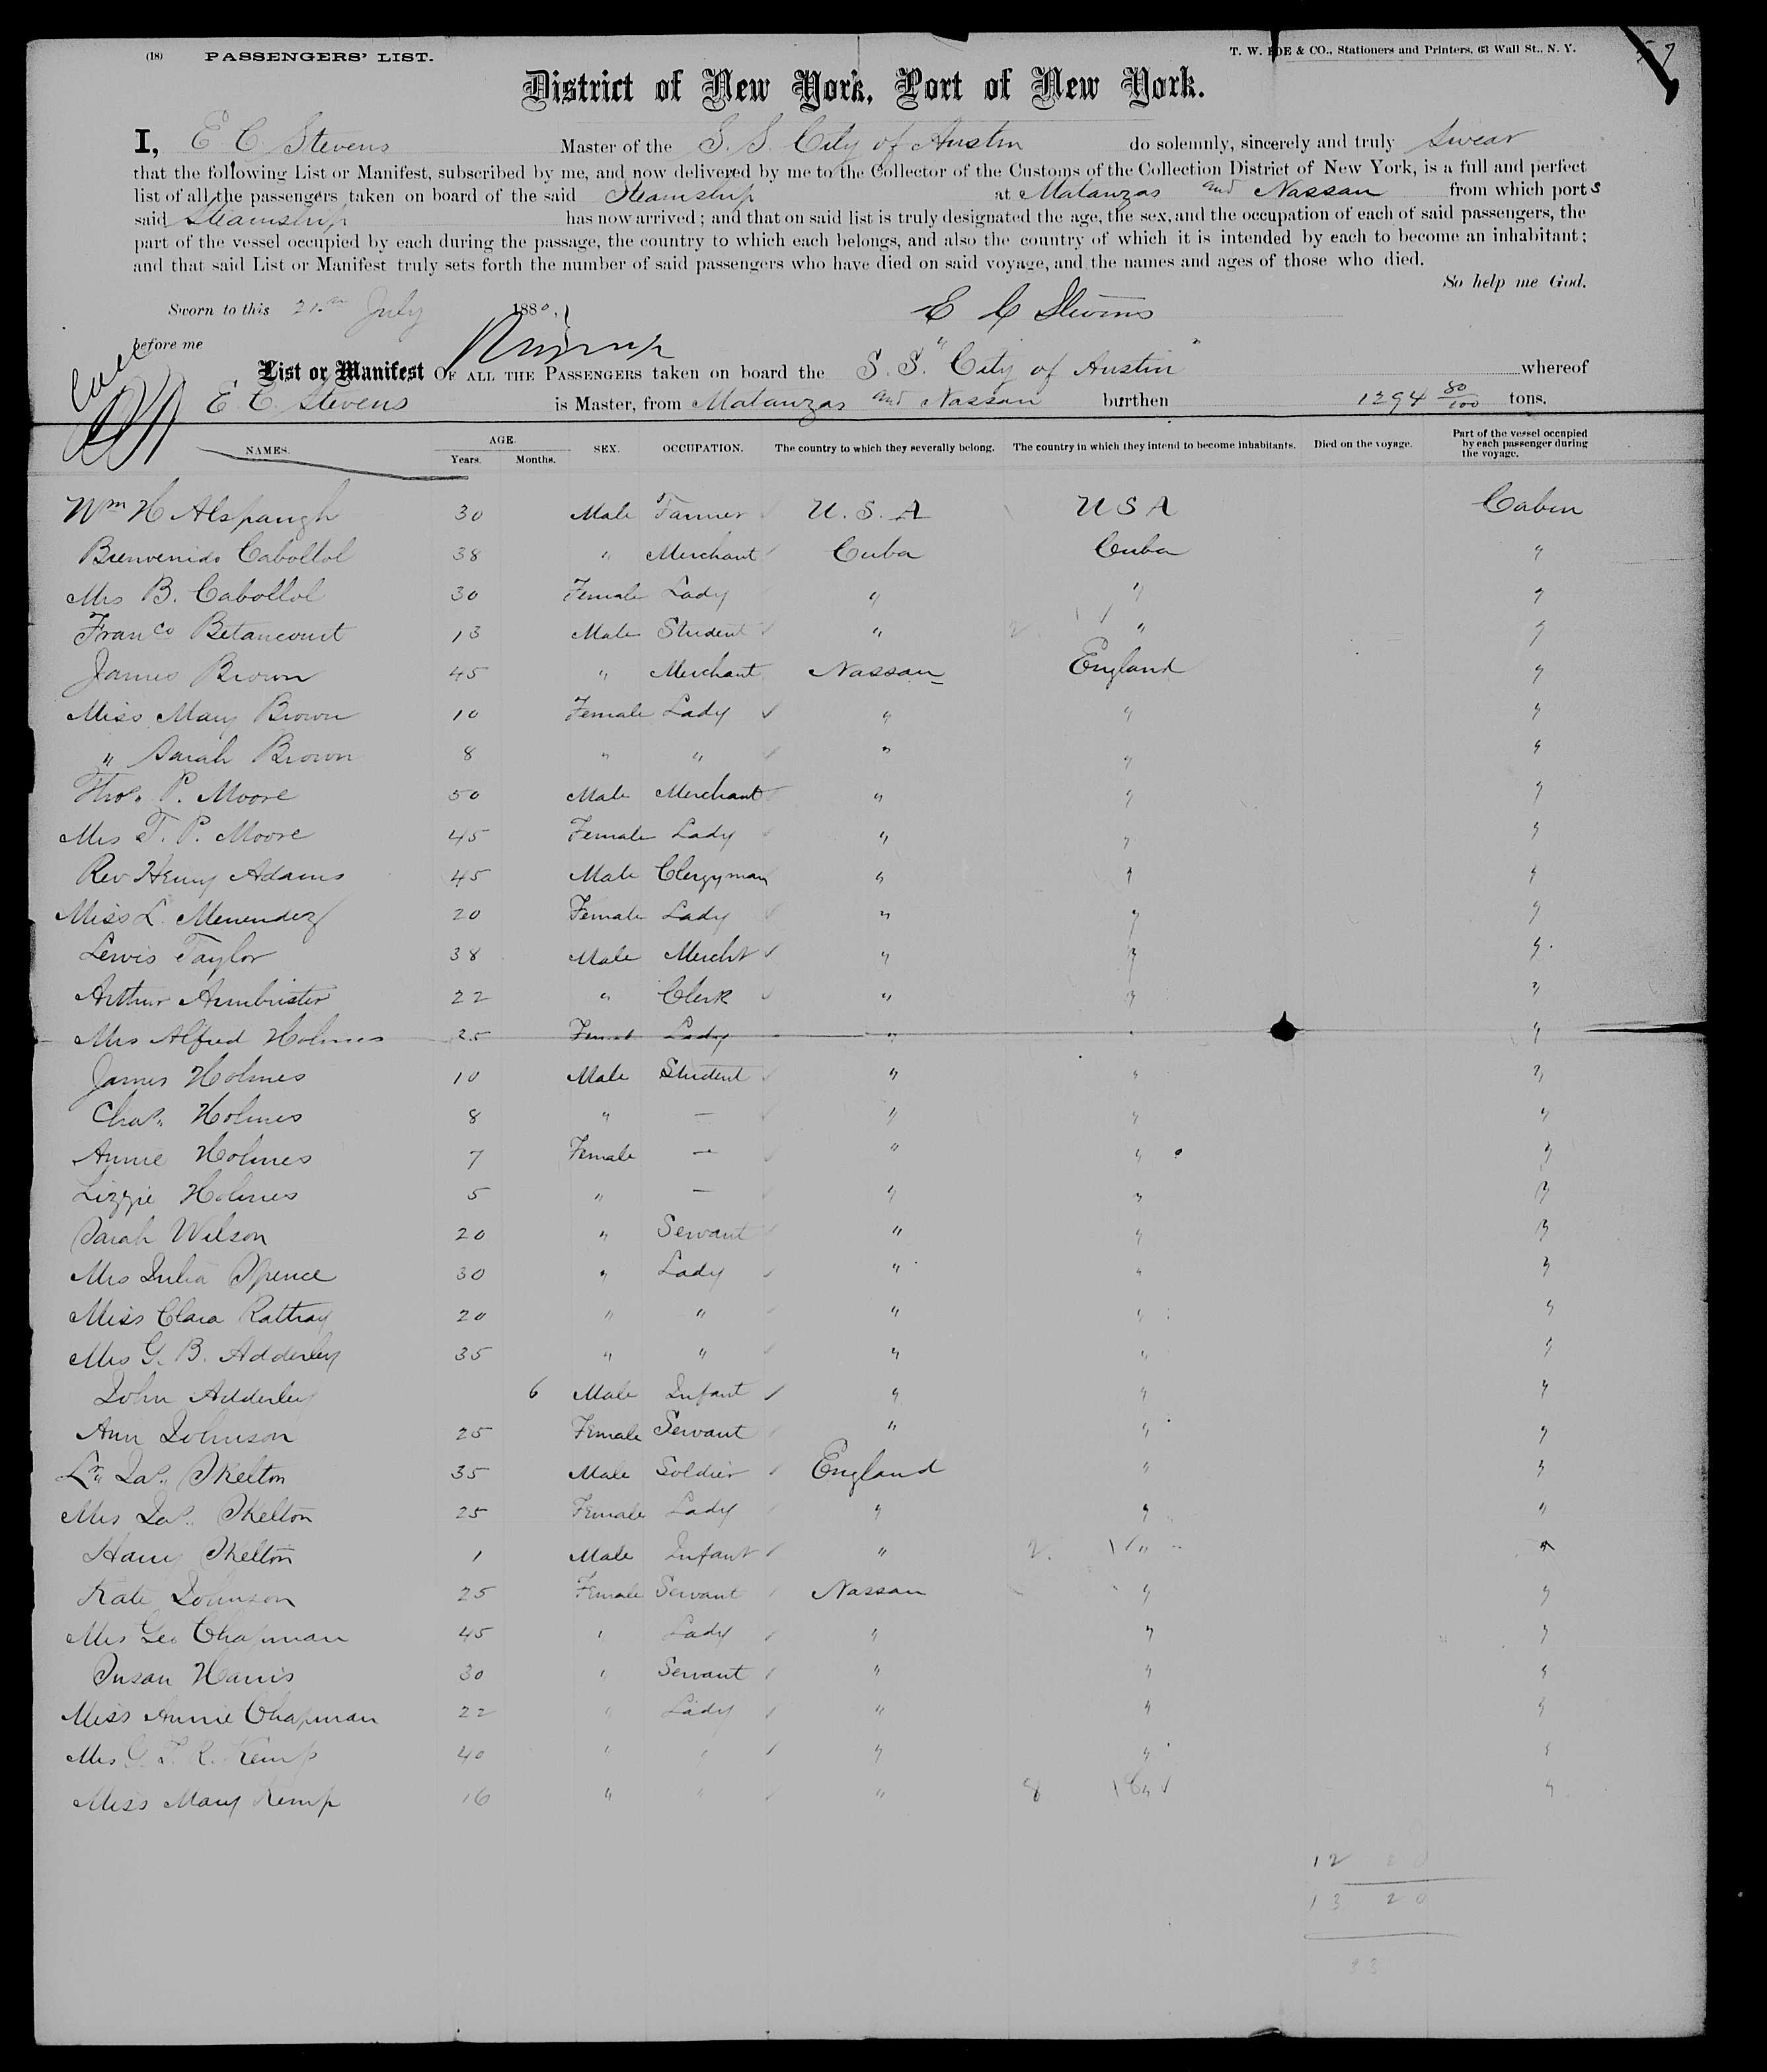 (18) PASSENGERS' LIST. T. W. & CO., Stationers and Printers, 63 Wall St., N. Y.
District of New York, Port of New York.
I, E C Stevens Master of the S. S. City of Austin do solemnly, sincerely and truly swear
that the following List or Manifest, subscribed by me, and now delivered by me to the Collector of the Customs of the Collection District of New York, is a full and perfect
list of all the passengers taken on board of the said Steamship at Matanzas and Nassau from which ports
said Steamship has now arrived; and that on said list is truly designated the age, the sex, and the occupation of each of said passengers, the
part of the vessel occupied by each during the passage, the country to which each belongs, and also the country of which it is intended by each to become an inhabitant;
and that said List or Manifest truly sets forth the number of said passengers who have died on said voyage, and the names and ages of those who died.
So help me God.
Sworn to this 21st July 1880, E C Stevens
before me
List or Manifest OF ALL THE PASSENGERS taken on board the S. S. "City of Austin" whereof
E C. Stevens is Master, from Matanzas and Nassau burthen 1294 80/100 tons.
NAMES. AGE. Years. Months. SEX. OCCUPATION. The country to which they severally belong. The country in which they intend to become inhabitants. Died on the voyage. Part of the vessel occupied by each passenger during the voyage.
Wm H Alspaugh 30 Male Farmer U. S. A USA Cabin
Bienvenido Cabollol 38 " Merchant Cuba Cuba "
Mrs B. Cabollol 30 Female Lady " " "
Franco Betancourt 13 Male Student " " "
James Brown 45 " Merchant Nassau England "
Miss Mary Brown 10 Female Lady " " "
" Sarah Brown 8 " " " " "
Thos. P. Moore 50 Male Merchant " " "
Mrs T. P. Moore 45 Female Lady " " "
Rev Henry Adams 45 Male Clergyman " " "
Miss L. Menendez 20 Female Lady " " "
Lewis Taylor 38 Male Mercht " " "
Arthur Armbrister 22 " Clerk " " "
Mrs Alfred Holmes 25 Female Lady " " "
James Holmes 10 Male Student " " "
Chas. Holmes 8 " — " " "
Annie Holmes 7 Female — " " "
Lizzie Holmes 5 " — " " "
Sarah Wilson 20 " Servant " " "
Mrs Julia Spence 30 " Lady " " "
Miss Clara Rattray 20 " " " " "
Mrs G. B. Adderley 35 " " " " "
John Adderley 6 Male Infant " " "
Ann Johnson 25 Female Servant " " "
Lt. Jas. Skelton 35 Male Soldier England " "
Mrs Jas. Skelton 25 Female Lady " " "
Harry Skelton 1 Male Infant " " "
Kate Johnson 25 Female Servant Nassau " "
Mrs Geo Chapman 45 " Lady " " "
Susan Harris 30 " Servant " " "
Miss Annie Chapman 22 " Lady " " "
Mrs G. T. R. Kemp 40 " " " " "
Miss Mary Kemp 16 " " " " "
12 20
13 20
33